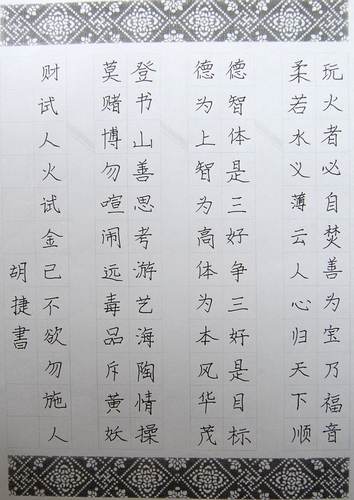 玩火者必自焚善为宝乃福音
柔若水义薄云人心归天下顺
德智体是三好争三好是目标
德为上智为高体为本风华茂
登书山善思考游艺海陶情操
莫赌博勿喧闹远毒品斥黄妖
财试人火试金己不欲勿施人
胡捷書